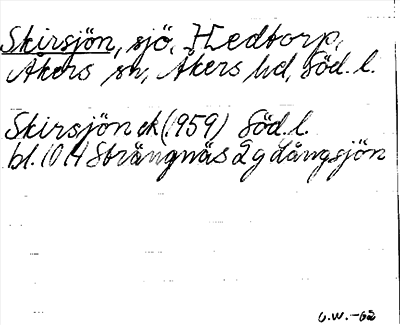 Skirsjön, sjö, Hedtorp,
Åkers sn, Åkers hd, Söd. l.
Skirsjön ek (1959) Söd. l.
bl. 10 H Strängnäs 2 g dångsjön
G.W.-62